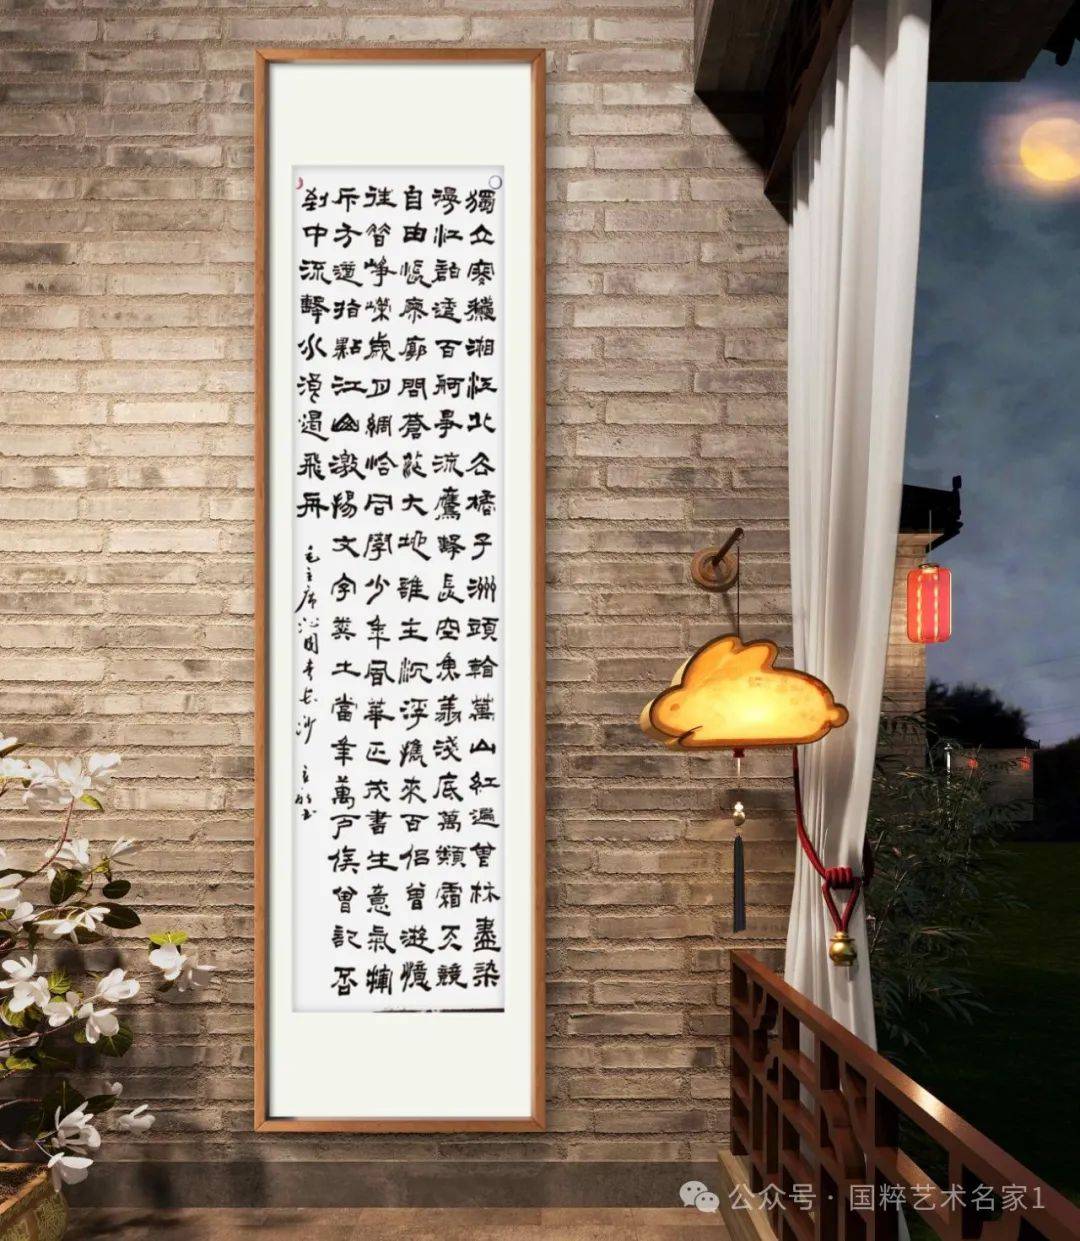 獨立寒龝湘江北去橘子洲頭看萬山紅遍曾林盡染
漫江碧透百舸爭流鷹擊長空魚翔淺底萬類霜天競
自由悵寥廓問蒼茫大地誰主沉浮攜來百侶曾遊憶
往昔崢嶸歲月稠恰同學少年風華正茂書生意氣揮
斥方遒指點江山激揚文字糞土當年萬戶侯曾記否
到中流擊水浪遏飛舟
毛主席沁園春長沙
公众号 · 国粹艺术名家1